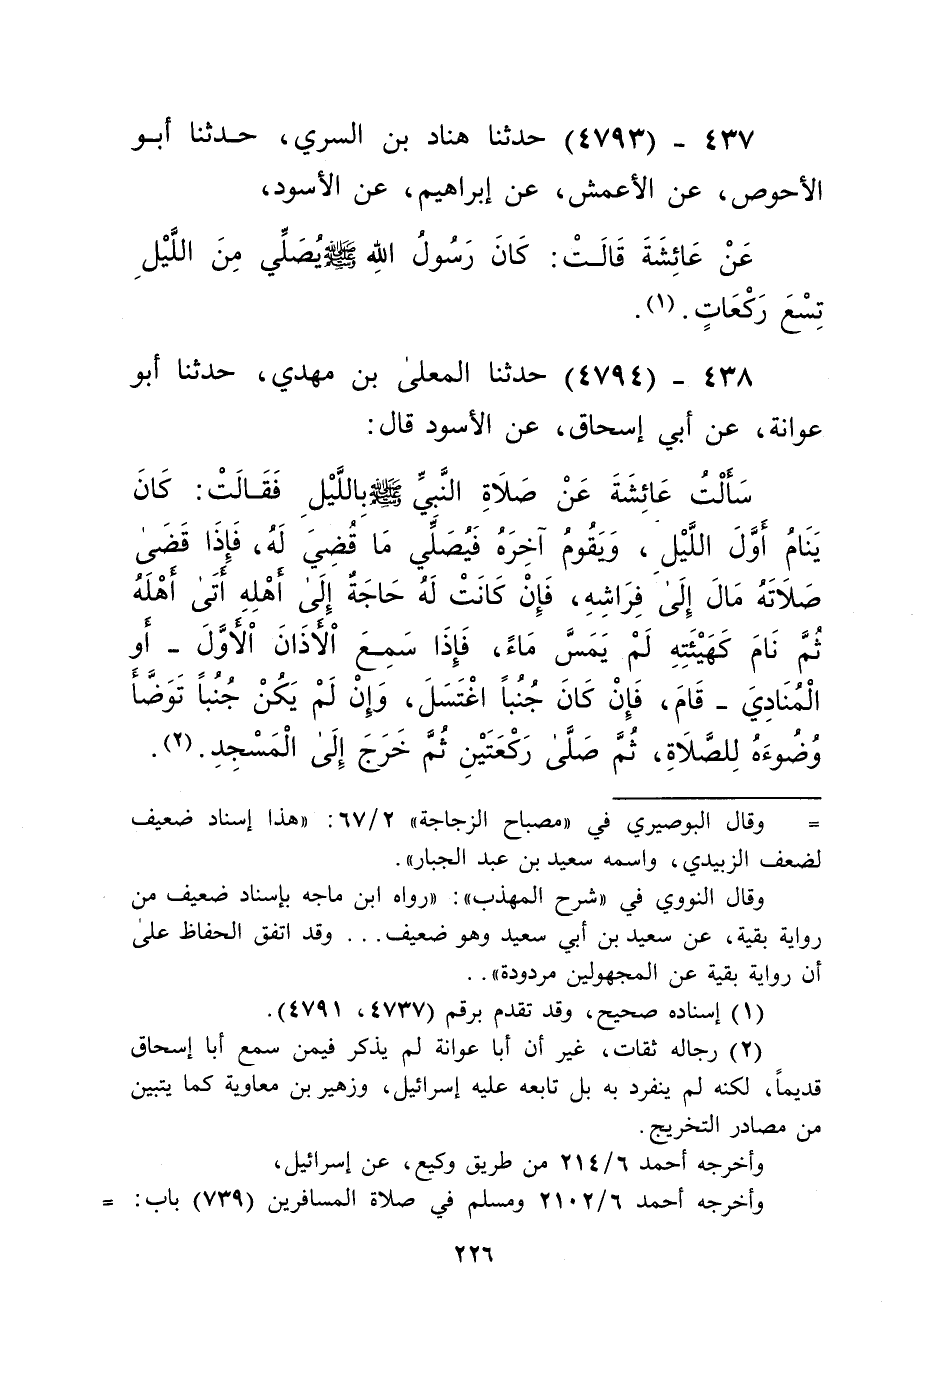 ٤٣٧ - (٤٧٩٣) حدثنا هناد بن السري، حدثنا أبو
الأحوص، عن الأعمش، عن إبراهيم، عن الأسود،
عَنْ عَائِشَةَ قَالَتْ: كَانَ رَسُولُ اللهِ ﷺ يُصَلِّي مِنَ اللَّيْلِ
تِسْعَ رَكْعَاتٍ. (١).
٤٣٨ - (٤٧٩٤) حدثنا المعلىٰ بن مهدي، حدثنا أبو
عوانة، عن أبي إسحاق، عن الأسود قال:
سَأَلْتُ عَائِشَةَ عَنْ صَلَاةِ النَّبِيِّ ﷺ بِاللَّيْلِ فَقَالَتْ: كَانَ
يَنَامُ أَوَّلَ اللَّيْلِ، وَيَقُومُ آخِرَهُ فَيُصَلِّي مَا قُضِيَ لَهُ، فَإِذَا قَضَىٰ
صَلَاتَهُ مَالَ إِلَىٰ فِرَاشِهِ، فَإِنْ كَانَتْ لَهُ حَاجَةٌ إِلَىٰ أَهْلِهِ أَتَىٰ أَهْلَهُ
ثُمَّ نَامَ كَهَيْئَتِهِ لَمْ يَمَسَّ مَاءً، فَإِذَا سَمِعَ الْأَذَانَ الْأَوَّلَ - أَوِ
الْمُنَادِيَ - قَامَ، فَإِنْ كَانَ جُنُباً اغْتَسَلَ، وَإِنْ لَمْ يَكُنْ جُنُباً تَوَضَّأَ
وُضُوءَهُ لِلصَّلَاةِ، ثُمَّ صَلَّىٰ رَكْعَتَيْنِ ثُمَّ خَرَجَ إِلَىٰ الْمَسْجِدِ. (٢).
= وقال البوصيري في «مصباح الزجاجة» ٦٧/٢: «هذا إسناد ضعيف
لضعف الزبيدي، واسمه سعيد بن عبد الجبار».
وقال النووي في «شرح المهذب»: «رواه ابن ماجه بإسناد ضعيف من
رواية بقية، عن سعيد بن أبي سعيد وهو ضعيف... وقد اتفق الحفاظ علىٰ
أن رواية بقية عن المجهولين مردودة»..
(١) إسناده صحيح، وقد تقدم برقم (٤٧٣٧، ٤٧٩١).
(٢) رجاله ثقات، غير أن أبا عوانة لم يذكر فيمن سمع أبا إسحاق
قديماً، لكنه لم ينفرد به بل تابعه عليه إسرائيل، وزهير بن معاوية كما يتبين
من مصادر التخريج.
وأخرجه أحمد ٢١٤/٦ من طريق وكيع، عن إسرائيل،
وأخرجه أحمد ٢١٠٢/٦ ومسلم في صلاة المسافرين (٧٣٩) باب: =
٢٢٦